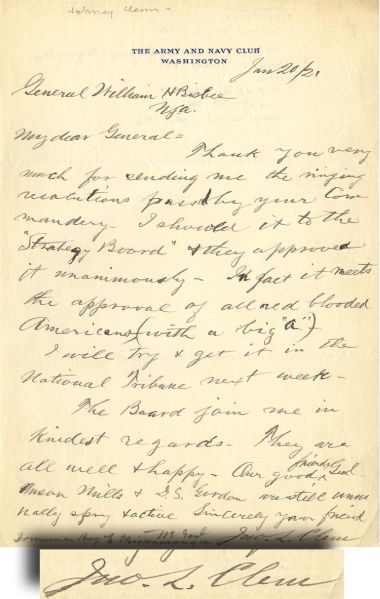 Johnny Clem -
THE ARMY AND NAVY CLUB
WASHINGTON
Jan 20/21
General William H Bisbee
My dear General =
Thank you very
much for sending me the ringing
resolutions by your Com
mandery. I showed it to the
"Strategy Board" & they approved
it unanimously - In fact it meets
the approval of all red blooded
Americans (with a big "A")
I will try & get it in the
National Tribune next week -
The Board join me in
kindest regards - They are
all well & happy - Our good friends Genl
Anson Mills & D.S. Gordon are still
spry & active Sincerely your friend
Drummer Boy of Chickamauga Jno. L. Clem
Jno. L. Clem